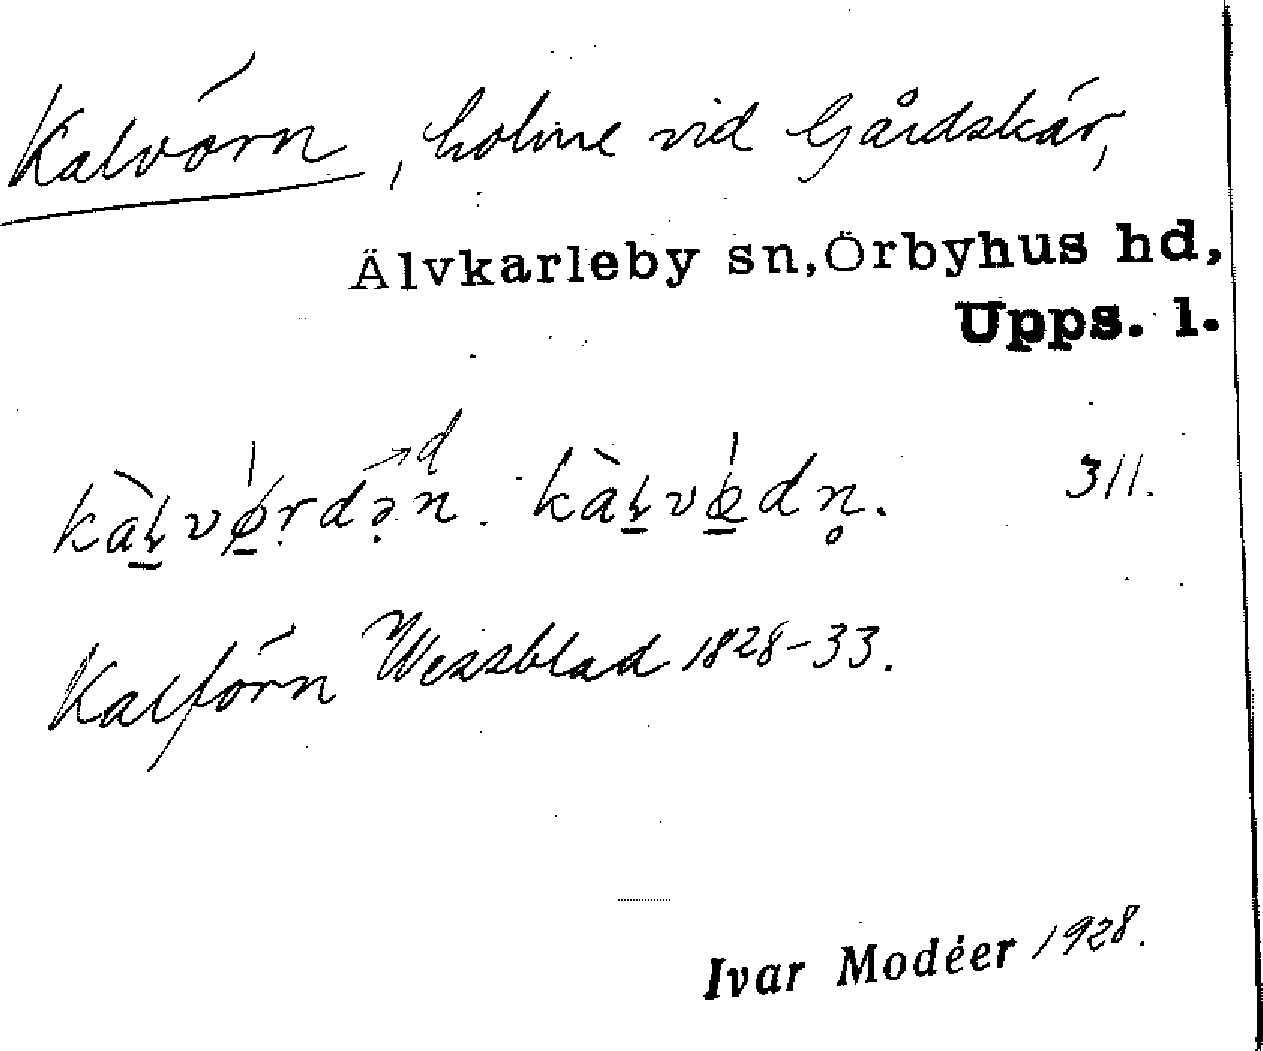 Kalvörn, holme vid Gårdskär,
Älvkarleby sn, Örbyhus hd,
Upps. l.
311.
Kalförn Wessblad 1828-33.
Ivar Modéer 1928.